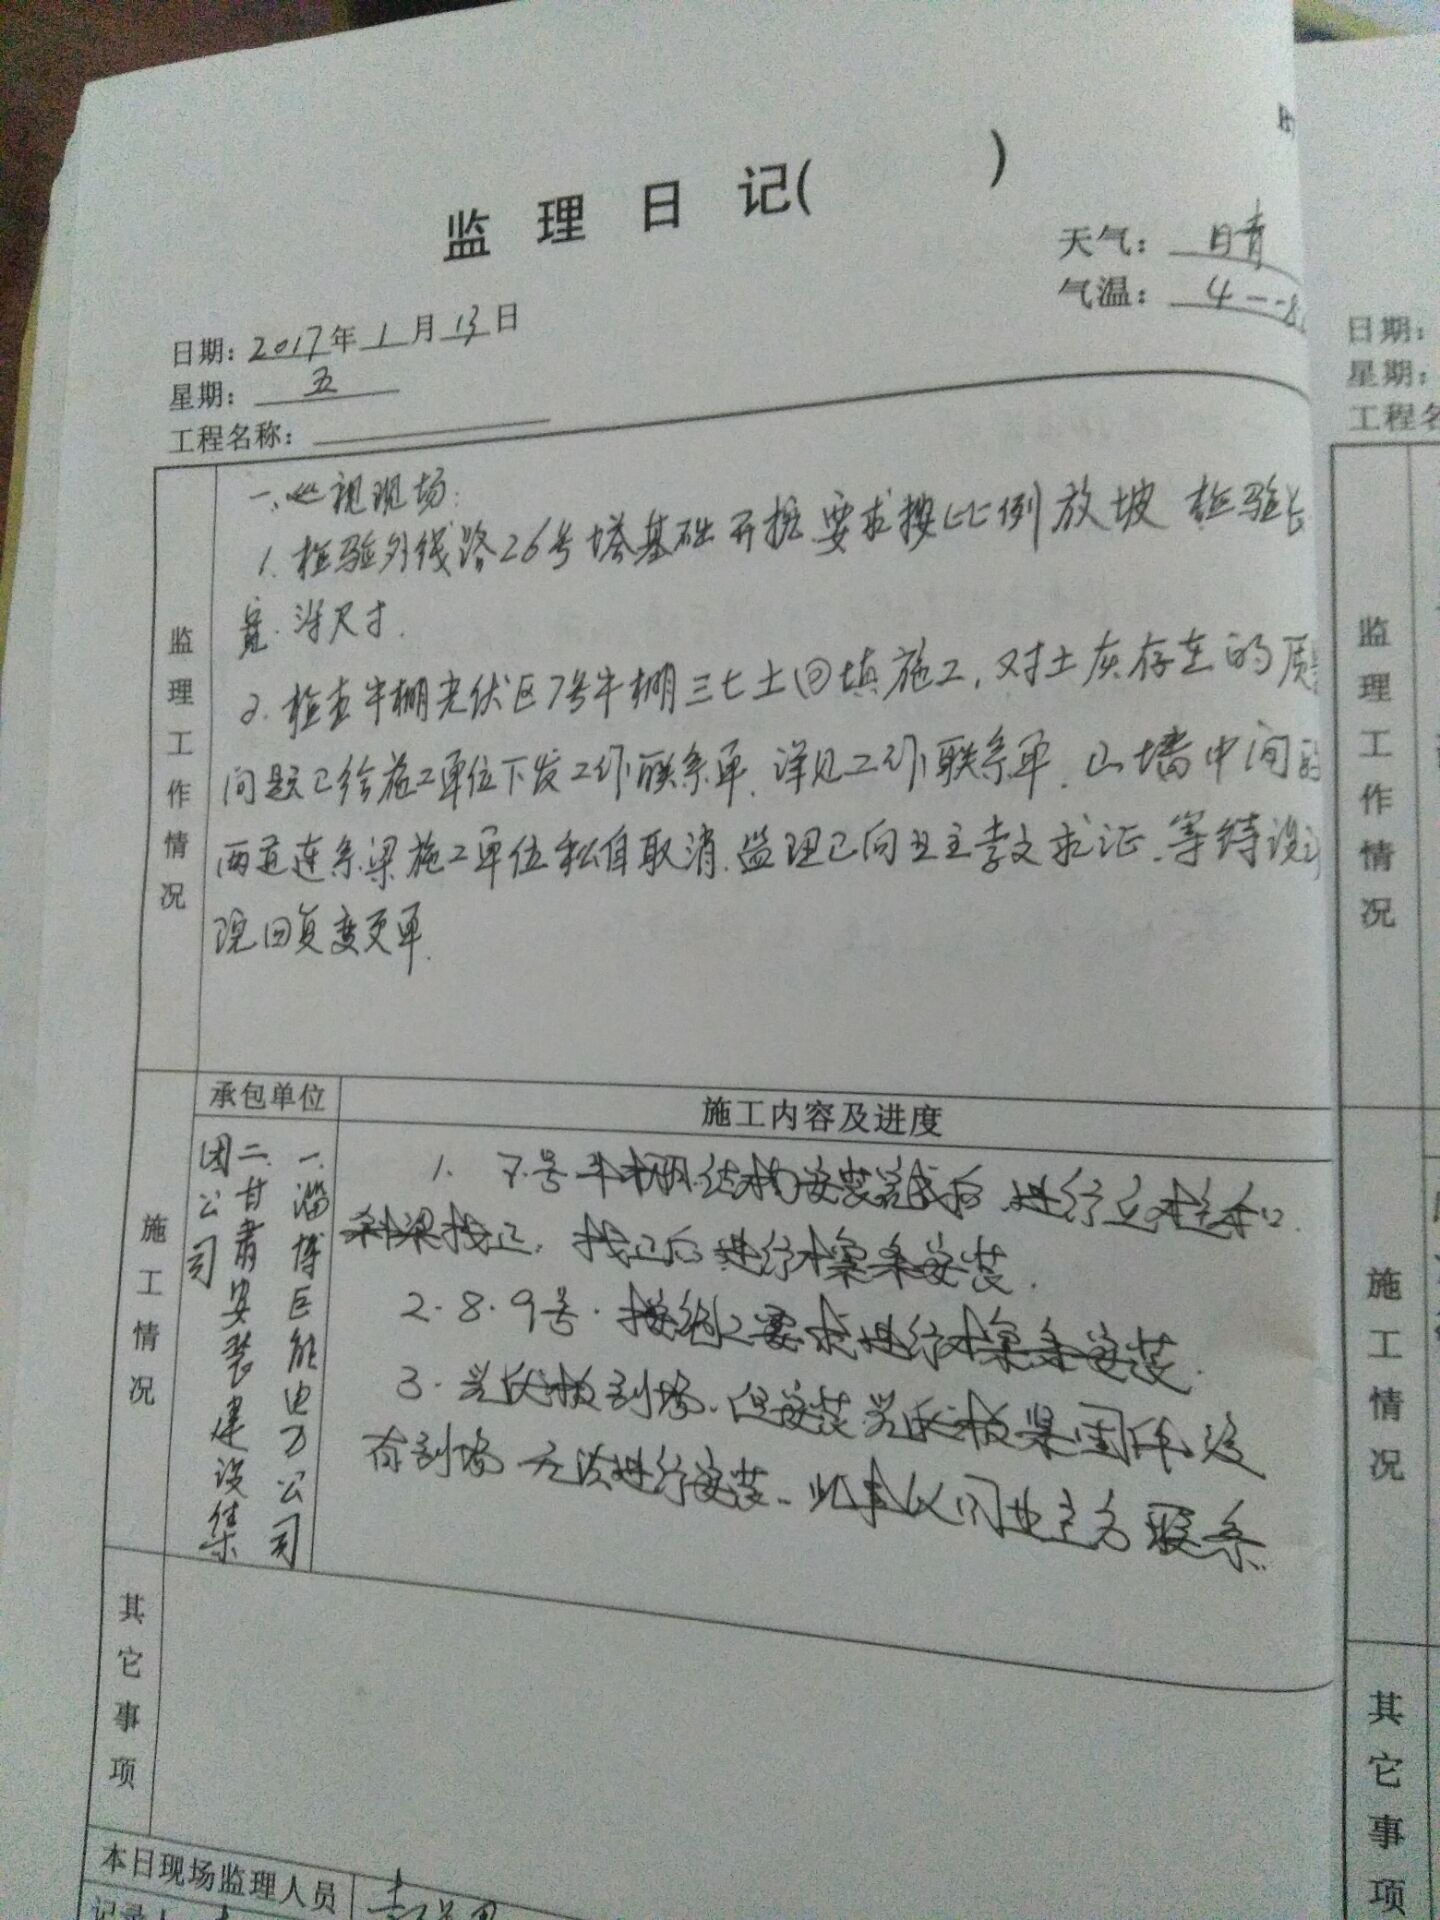 监理日记( )
天气：晴
气温：4--8
日期：2017年1月13日
星期：五
工程名称：
监理工作情况
一、巡视现场：
1. 检验外线路26号塔基础开挖、要求按比例放坡 检验长
宽、深尺寸.
2. 检查牛棚光伏区7号牛棚三七土回填施工，对土灰存在的质
问题已给施工单位下发工作联系单，详见工作联系单，山墙中间的
两道连系梁施工单位私自取消，监理已向业主李文求证、等待设
院回复变更单.
承包单位
施工内容及进度
施工情况
一.淄博巨能电力公司
二.甘肃安装建设集
团公司
1. 7号牛棚结构安装完成后，进行立柱和
斜梁找正，找正后进行檩条安装.
2. 8. 9号. 按细工要求进行檩条安装.
3. 光伏板到场，但安装光伏板紧固件没
有到场 无法进行安装、此事以同业主方联系
其它事项
本日现场监理人员
记录人
日期：
星期：
工程名
监理工作情况
施工情况
其它事项